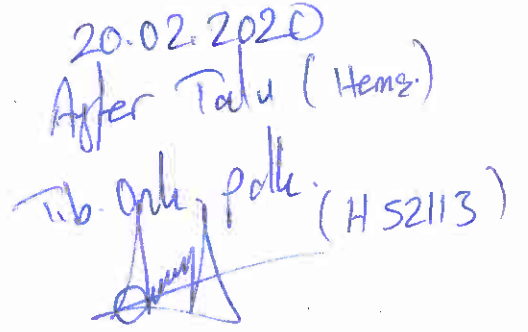 20.02.2020
Ayfer Talu (Hemş.)
Tıb. Onk. polk.
(H 52113)